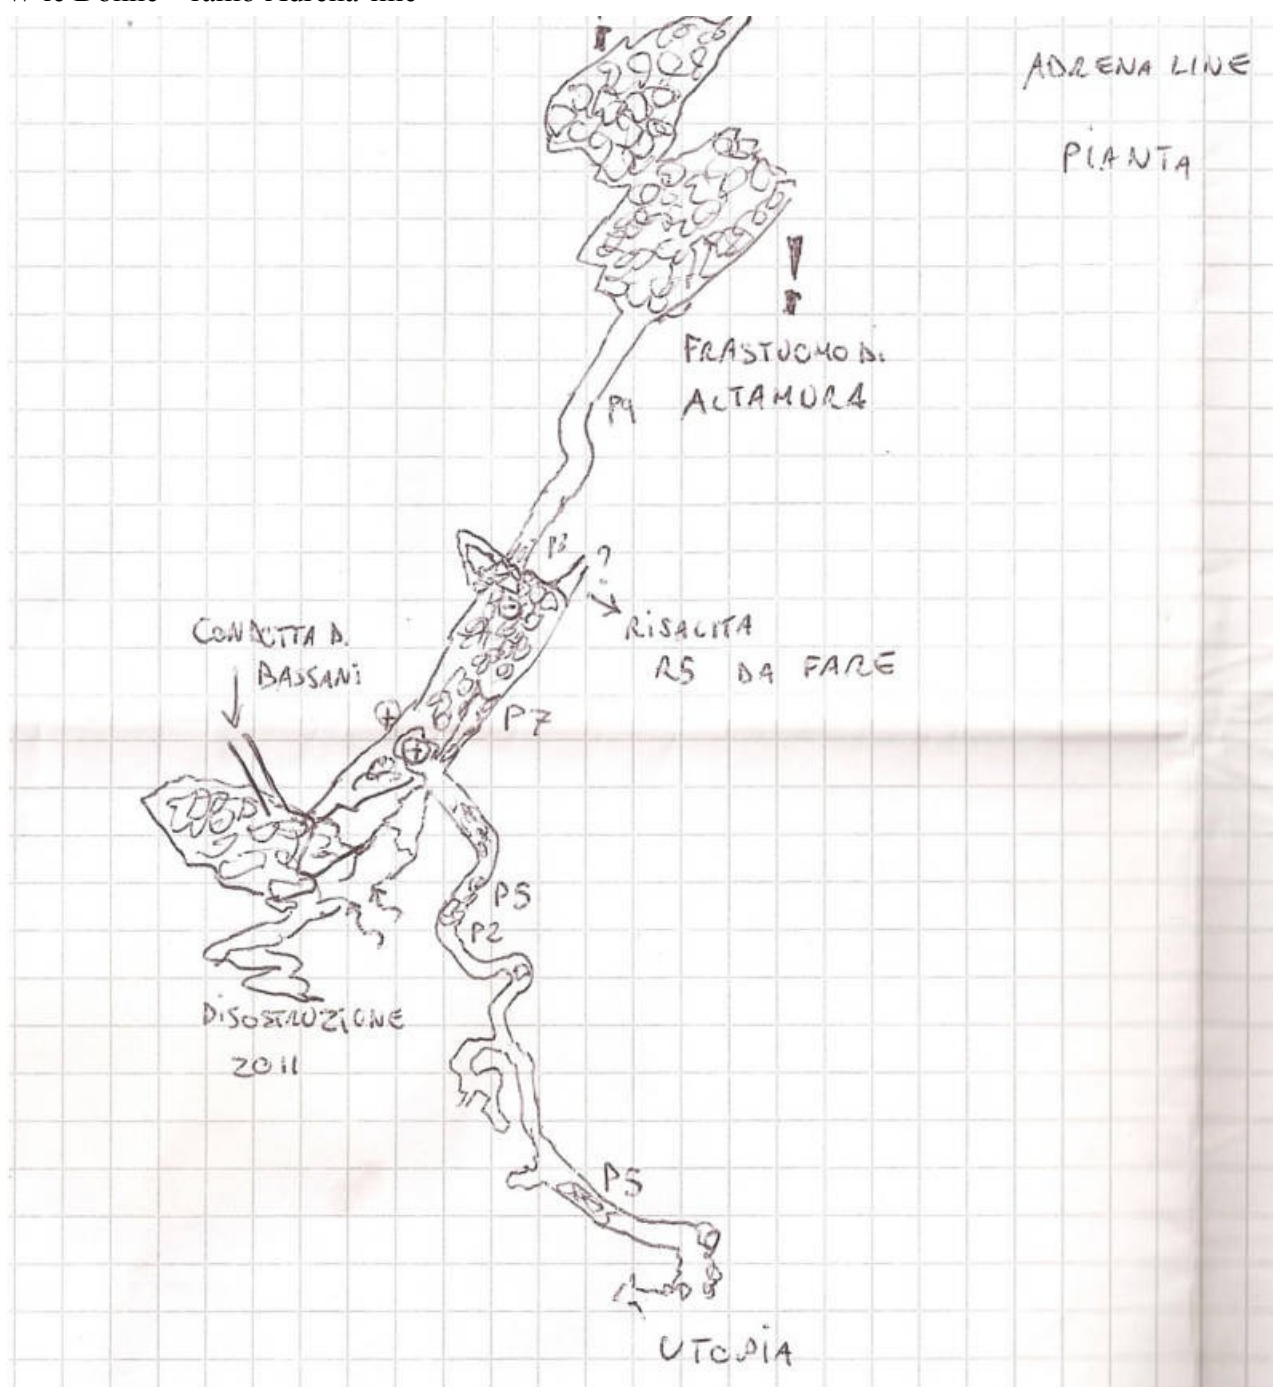 ADRENA LINE
PIANTA
FRASTUONO DI
ALTAMURA
P9
P3
?
RISALITA
R5 DA FARE
CONDOTTA D.
BASSANI
P7
P5
P2
DISOSTRUZIONE
2011
P5
UTOPIA